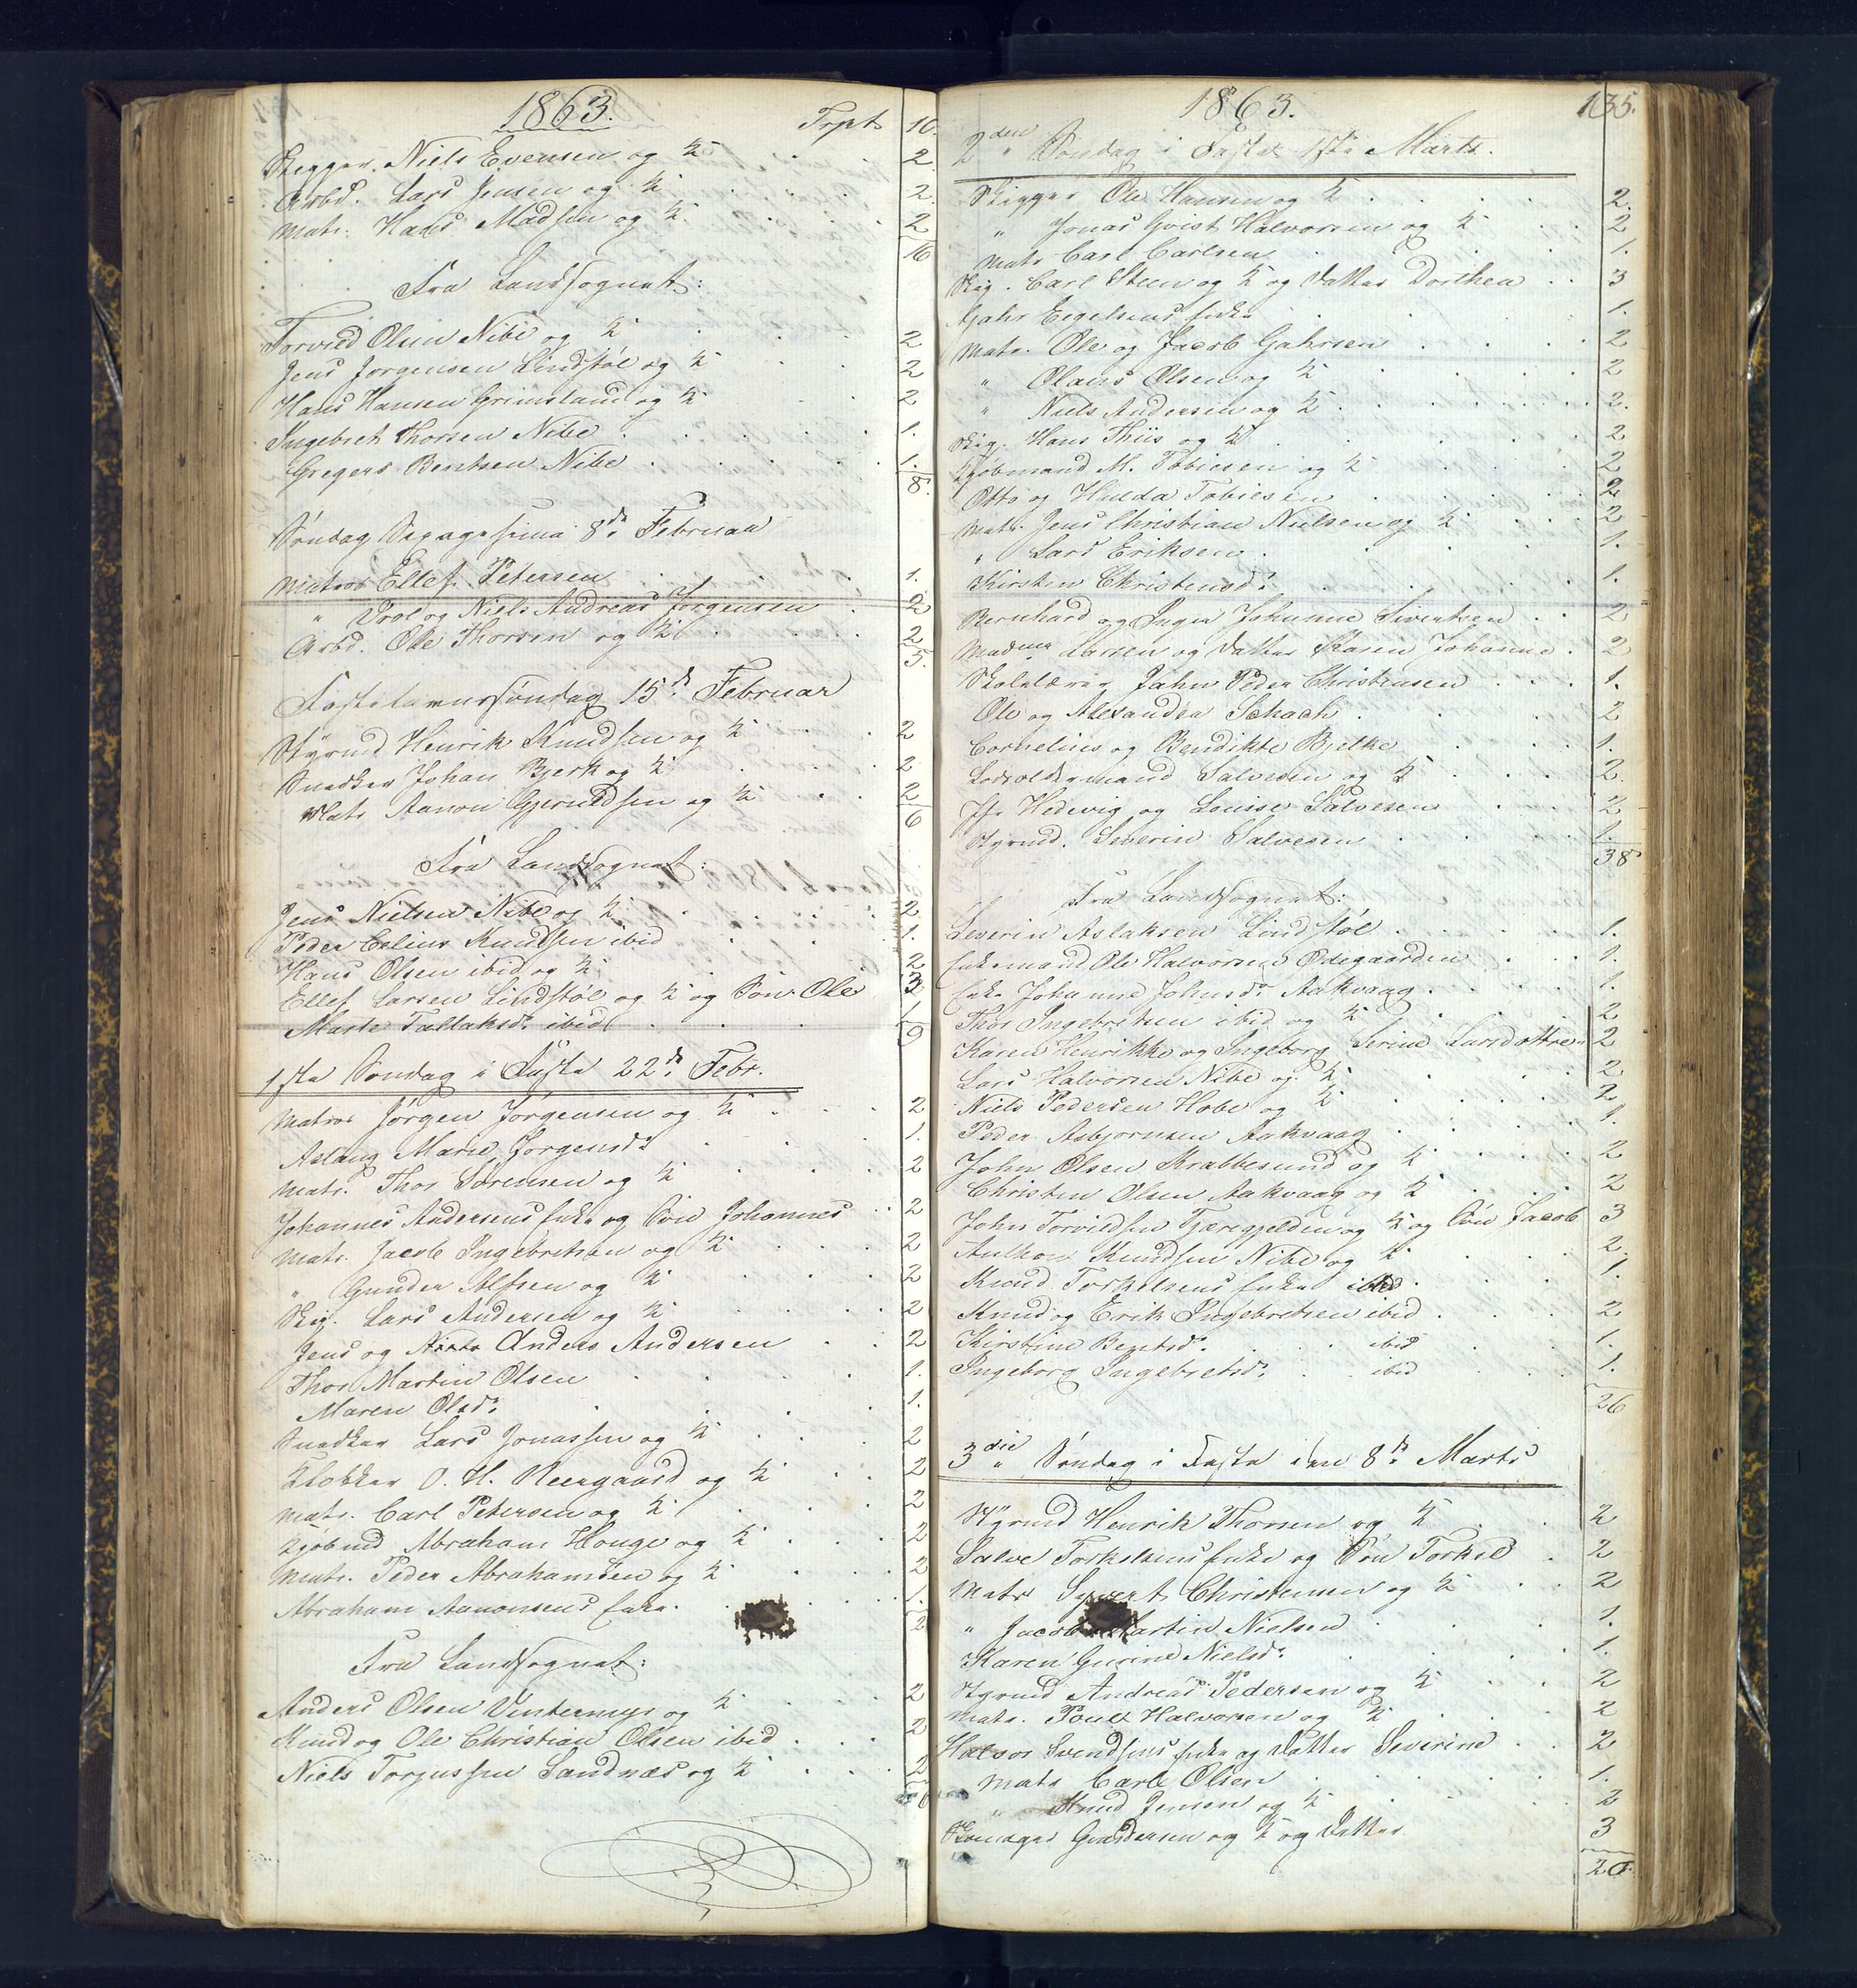 1863.
Trpt 10.
Skipper. Niels Evensen og K 2.
Arbd. Lars Jensen og K 2.
Matr. Hans Madsen og K 2
16
Fra Landsognet:
Torvild Olsen Nibe og K 2
Jens Jørgensen Lindstøl og K 2
Hans Hansen Grimsland og K 2
Ingebret Thorsen Nibe 1.
Gregers Bentsen Nibe 1.
8.
Søndag Sexagesima 8de Februar
Matros Ellef Petersen 1.
" og Niels Andreas Jørgensen 2
Arbd. Ole Thorsen og K 2
5.
Fastelavnssøndag 15de Februar
Styrmd Henrik Knudsen og K 2
Snedker Johan Bjerk og K 2
Matr Aanon Gjeruldsen og K 2
6
Fra Landsognet:
Jens Nielsen Nibe og K 2
Peder Celius Knudsen ibid 1.
Hans Olsen ibid og K 2
Ellef Larsen Lindstøl og K og Søn Ole 3
Marte Tallaksdr ibid 1
9
1ste Søndag i Faste 22de Febr.
Matros Jørgen Jørgensen og K 2
Aslaug Marie Jørgensdr 1.
Matr. Thor Sørensen og K 2
Johannes Andersens Enke og Søn Johannes 2
Matr. Jacob Ingebretsen og K 2
" Gunder Alfsen og K 2
Skip. Lars Andersen og K 2
Jens og Anders Andersen 2
Thor Martin Olsen 1.
Maren Olsdr 1.
Snedker Lars Jonassen og K 2
Klokker O. H. Neergaard og K 2
Matr. Carl Petersen og K 2
Kjøbmd Abraham Houge og K 2
Matr. Peder Abrahamsen og K 2
Abraham Aanonsens Enke 1.
Fra Landsognet:
Anders Olsen Vintermyr og K 2
Knud og Ole Christian Olsen ibid 2
Niels Torgussen Sandnæs og K 2
1863.
135.
2den Søndag i Faste 1ste Marts.
Skipper Ole Hansen og K 2.
" Jonas Qvist Halvorsen og K 2
Matr Carl Carlsen 1.
Skip. Carl Steen og K og Datter Dorthea 3
Gjahr Eegelsens Enke 1.
Matr. Ole og Jacob Gahrsen 2
" Olaus Olsen og K 2
" Niels Andersen og K 2.
Skip. Hans Thiis og K 2
Kjøbmand M. Tobiesen og K 2
Otto og Hulda Tobiesen 2
Matr. Jens Christian Nielsen og K 2
" Lars Eriksen 1.
Kirsten Christensdr 1.
Bernhard og Inger Johanne Sivertsen 2
Madme Larsen og Datter Karen Johanne 2
Skolelærer Jahn Peder Christensen 1.
Ole og Alexandra Schach 2
Cornelius og Bendikte Bjelke 1.
Lodsoldermand Salvesen og K 2.
Jfr Hedevig og Louise Salvesen 2
Styrmd. Severin Salvesen 1.
38
Fra Landsognet:
Severin Aslaksen Lindstøl 1.
Enkemand Ole Halvorsen Ødegaarden 1.
Enke Johanne Johnsdr Aakvaag 1.
Thor Ingebretsen ibid og K 2
Karen Henrikke og Ingeborg Serine Larsdøttre 2
Lars Halvorsen Nibe og K 2
Niels Pedersen Hobe og K 2
Peder Asbjørnsen Aakvaag 1.
John Olsen Krabbesund og K 2
Christen Olsen Aakvaag og K 2
John Torvildsen Tjæregjelden og K og Søn Jacob 3
Anthon Knudsen Nibe og K 2
Knud Torkelsens Enke ibid 1.
Knud og Erik Ingebretsen ibid 2
Kirstine Bentsdr ibid 1.
Ingeborg Ingebretsdr ibid 1.
26
3die Søndag i Faste den 8de Marts
Styrmd Henrik Thorsen og K 2
Salve Torkelsens Enke og Søn Torkel 2
Matr Syvert Christensen og K 2
" Jacob Martin Nielsen 1.
Karen Gurine Nielsdr 1.
Styrmd Andreas Pedersen og K 2
Matr. Poul Halvorsen og K 2
Halvor Svendsens Enke og Datter Severine 2
Matr Carl Olsen 1.
" Knud Jensen og K 2
Skomager Gundersen og K og Datter 3
20.